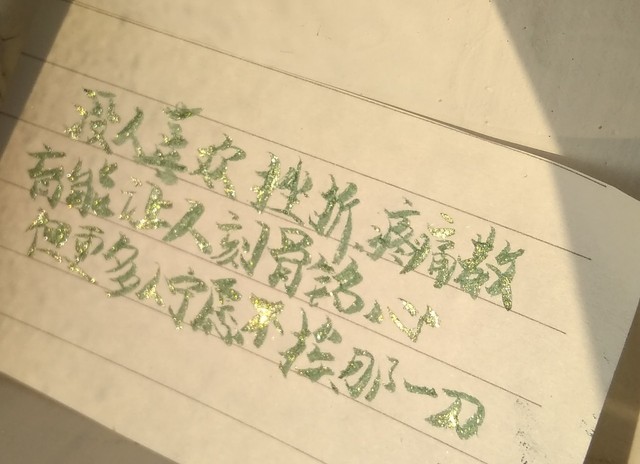 没人喜欢挫折疼痛教
育能让人刻骨铭心
但更多人宁愿不挨那一刀